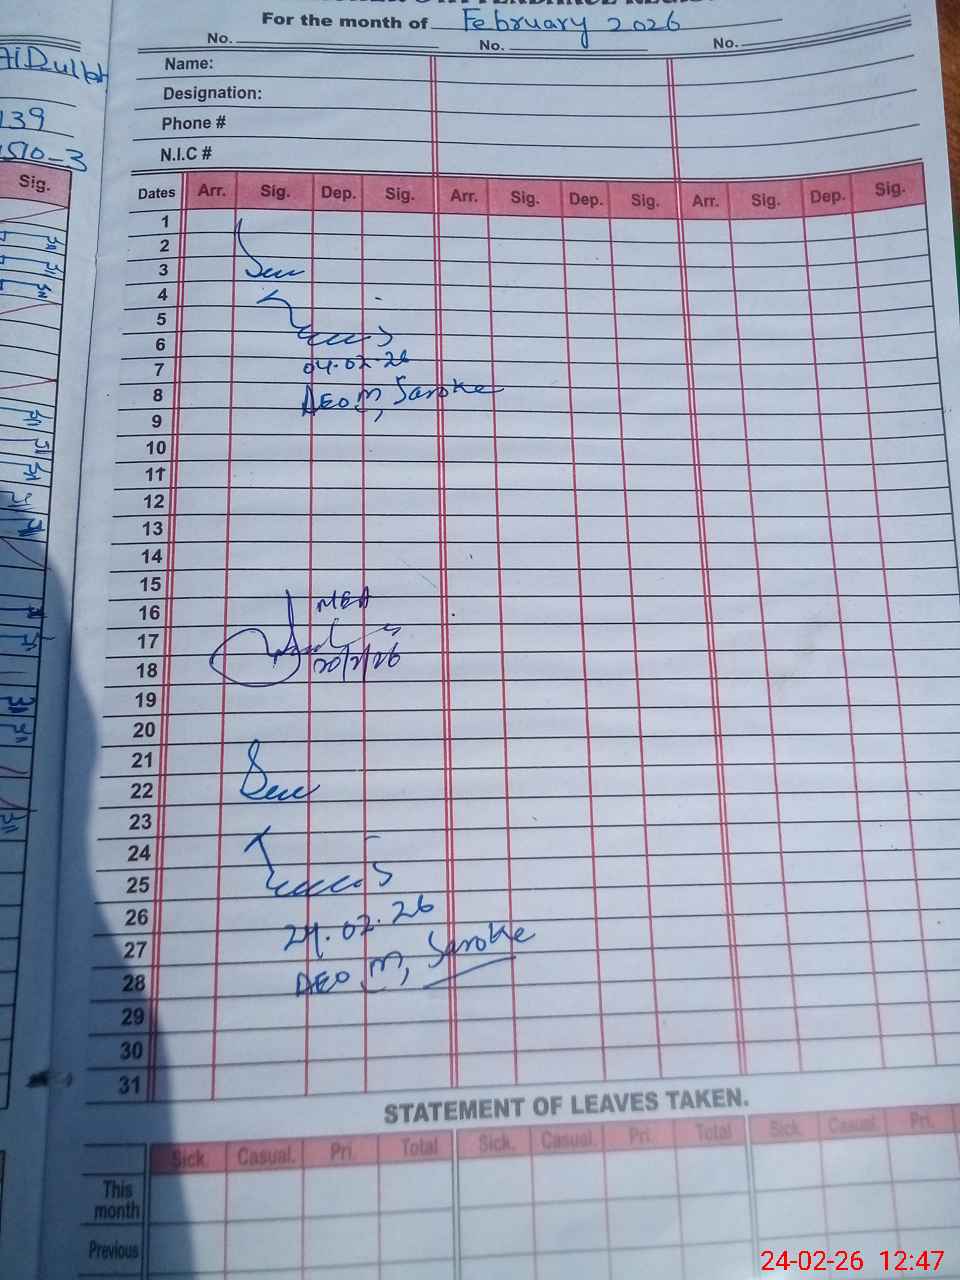 For the month of February 2026
No. No. No.
Name:
Designation:
Phone #
N.I.C #
139
510-3
Sig.
Dates Arr. Sig. Dep. Sig. Arr. Sig. Dep. Sig. Arr. Sig. Dep. Sig.
1
2
3
4
5
6
7
04.02.26
8
AEO M, Saroke
9
10
11
12
13
14
15
16
MEA
17
18
20/2/26
19
20
21
22
23
24
25
26
24.02.26
27
AEO M, Saroke
28
29
30
31
STATEMENT OF LEAVES TAKEN.
Sick. Casual. Pri. Total Sick. Casual. Pri. Total Sick. Casual. Pri.
This month
Previous
24-02-26 12:47